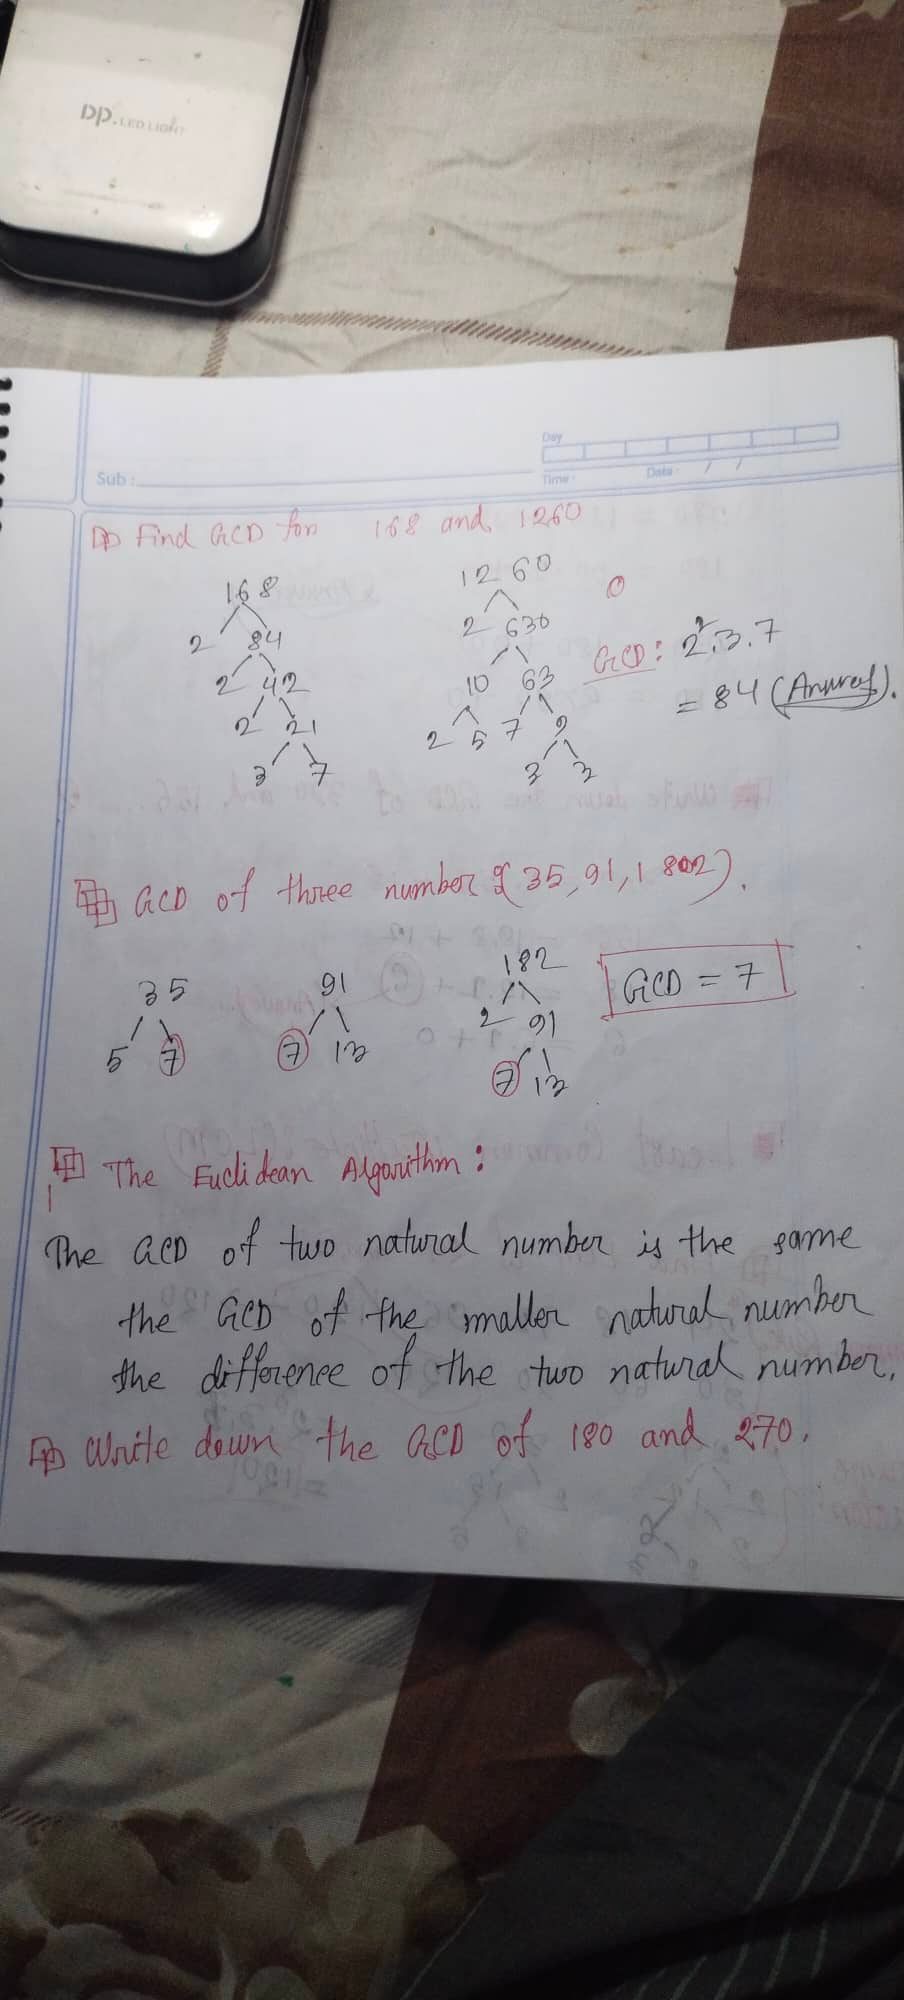 DP. LED LIGHT
Day
Sub :
Time : Date : / /
Find GCD for 168 and 1260
168 1260
2 84 2 630
GCD: 2².3.7
2 42 10 63
= 84 (Answer).
2 21 2 5 7 9
3 7 3 3
GCD of three number (35, 91, 182).
35 91 182
GCD = 7
5 7 7 13 2 91
7 13
The Euclidean Algorithm :
The GCD of two natural number is the same
the GCD of the smaller natural number
the difference of the two natural number.
Write down the GCD of 180 and 270.